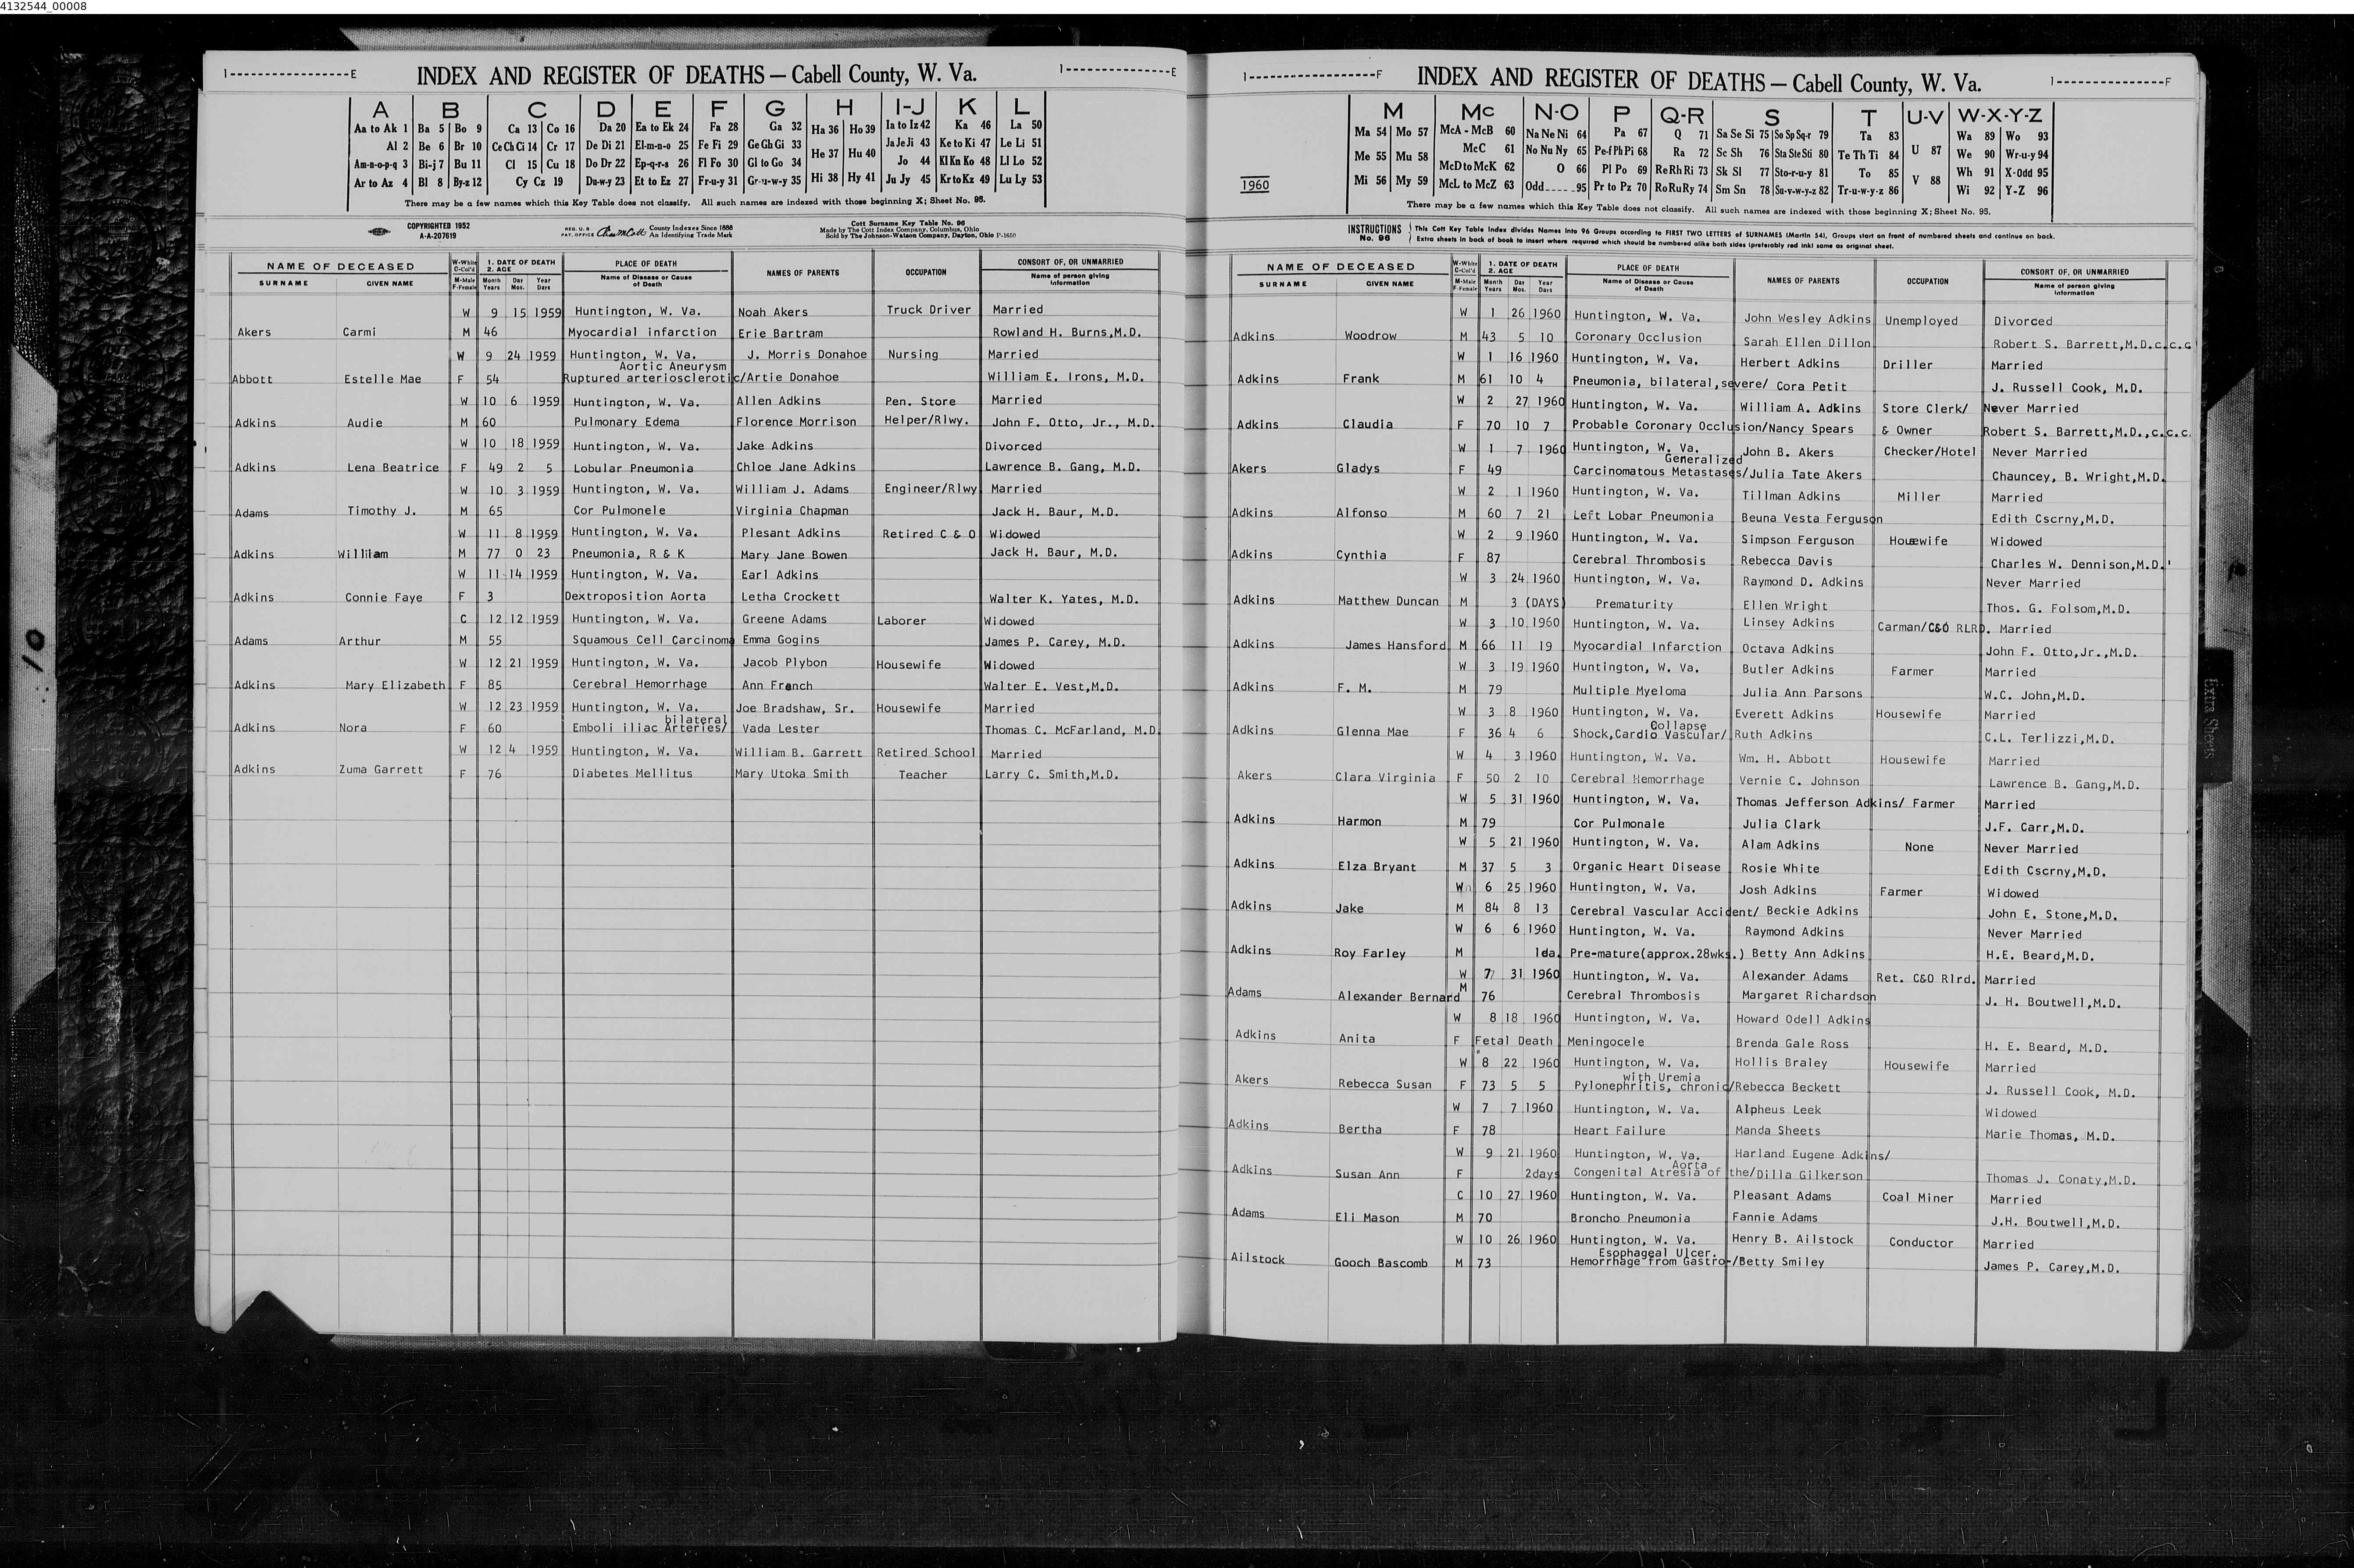 4132544_00008
1-----------------E INDEX AND REGISTER OF DEATHS — Cabell County, W. Va. 1---------------E
A B C D E F G H I-J K L
Aa to Ak 1 Ba 5 Bo 9 Ca 13 Co 16 Da 20 Ea to Ek 24 Fa 28 Ga 32 Ha 36 Ho 39 Ia to Iz 42 Ka 46 La 50
Al 2 Be 6 Br 10 Ce Ch Ci 14 Cr 17 De Di 21 El-m-n-o 25 Fe Fi 29 Ge Gh Gi 33 He 37 Hu 40 Ja Je Ji 43 Ke to Ki 47 Le Li 51
Am-n-o-p-q 3 Bi-j 7 Bu 11 Cl 15 Cu 18 Do Dr 22 Ep-q-r-s 26 Fl Fo 30 Gl to Go 34 Jo 44 Kl Kn Ko 48 Ll Lo 52
Ar to Az 4 Bl 8 By-z 12 Cy Cz 19 Du-w-y 23 Et to Ez 27 Fr-u-y 31 Gr-u-w-y 35 Hi 38 Hy 41 Ju Jy 45 Kr to Kz 49 Lu Ly 53
There may be a few names which this Key Table does not classify. All such names are indexed with those beginning X; Sheet No. 95.
COPYRIGHTED 1952
A-A-207619
REG. U. S. PAT. OFFICE County Indexes Since 1888
An Identifying Trade Mark
Cott Surname Key Table No. 96
Made by The Cott Index Company, Columbus, Ohio
Sold by The Johnson-Watson Company, Dayton, Ohio P-1650
NAME OF DECEASED W-White C-Col'd 1. DATE OF DEATH 2. AGE PLACE OF DEATH NAMES OF PARENTS OCCUPATION CONSORT OF, OR UNMARRIED
SURNAME GIVEN NAME M-Male F-Female Month Years Day Mos. Year Days Name of Disease or Cause of Death Name of person giving information
W 9 15 1959 Huntington, W. Va. Noah Akers Truck Driver Married
Akers Carmi M 46 Myocardial infarction Erie Bartram Rowland H. Burns,M.D.
W 9 24 1959 Huntington, W. Va. J. Morris Donahoe Nursing Married
Aortic Aneurysm
Abbott Estelle Mae F 54 Ruptured arteriosclerotic/Artie Donahoe William E. Irons, M.D.
W 10 6 1959 Huntington, W. Va. Allen Adkins Pen. Store Married
Adkins Audie M 60 Pulmonary Edema Florence Morrison Helper/Rlwy. John F. Otto, Jr., M.D.
W 10 18 1959 Huntington, W. Va. Jake Adkins Divorced
Adkins Lena Beatrice F 49 2 5 Lobular Pneumonia Chloe Jane Adkins Lawrence B. Gang, M.D.
W 10 3 1959 Huntington, W. Va. William J. Adams Engineer/Rlwy Married
Adams Timothy J. M 65 Cor Pulmonele Virginia Chapman Jack H. Baur, M.D.
W 11 8 1959 Huntington, W. Va. Plesant Adkins Retired C & O Widowed
Adkins William M 77 0 23 Pneumonia, R & K Mary Jane Bowen Jack H. Baur, M.D.
W 11 14 1959 Huntington, W. Va. Earl Adkins
Adkins Connie Faye F 3 Dextroposition Aorta Letha Crockett Walter K. Yates, M.D.
C 12 12 1959 Huntington, W. Va. Greene Adams Laborer Widowed
Adams Arthur M 55 Squamous Cell Carcinoma Emma Gogins James P. Carey, M.D.
W 12 21 1959 Huntington, W. Va. Jacob Plybon Housewife Widowed
Adkins Mary Elizabeth F 85 Cerebral Hemorrhage Ann French Walter E. Vest,M.D.
W 12 23 1959 Huntington, W. Va. Joe Bradshaw, Sr. Housewife Married
bilateral
Adkins Nora F 60 Emboli iliac Arteries/ Vada Lester Thomas C. McFarland, M.D.
W 12 4 1959 Huntington, W. Va. William B. Garrett Retired School Married
Adkins Zuma Garrett F 76 Diabetes Mellitus Mary Utoka Smith Teacher Larry C. Smith,M.D.
1------------------F INDEX AND REGISTER OF DEATHS — Cabell County, W. Va. 1---------------F
M Mc N-O P Q-R S T U-V W-X-Y-Z
Ma 54 Mo 57 McA - McB 60 Na Ne Ni 64 Pa 67 Q 71 Sa Se Si 75 So Sp Sq-r 79 Ta 83 U 87 Wa 89 Wo 93
Me 55 Mu 58 McC 61 No Nu Ny 65 Pe-f Ph Pi 68 Ra 72 Sc Sh 76 Sta Ste Sti 80 Te Th Ti 84 We 90 Wr-u-y 94
McD to McK 62 O 66 Pl Po 69 Re Rh Ri 73 Sk Sl 77 Sto-r-u-y 81 To 85 V 88 Wh 91 X-Odd 95
Mi 56 My 59 McL to McZ 63 Odd_____95 Pr to Pz 70 Ro Ru Ry 74 Sm Sn 78 Su-v-w-y-z 82 Tr-u-w-y-z 86 Wi 92 Y-Z 96
1960
There may be a few names which this Key Table does not classify. All such names are indexed with those beginning X; Sheet No. 95.
INSTRUCTIONS No. 96 This Cott Key Table Index divides Names into 96 Groups according to FIRST TWO LETTERS of SURNAMES (Martin 54). Groups start on front of numbered sheets and continue on back.
Extra sheets in back of book to insert where required which should be numbered alike both sides (preferably red ink) same as original sheet.
NAME OF DECEASED W-White C-Col'd 1. DATE OF DEATH 2. AGE PLACE OF DEATH NAMES OF PARENTS OCCUPATION CONSORT OF, OR UNMARRIED
SURNAME GIVEN NAME M-Male F-Female Month Years Day Mos. Year Days Name of Disease or Cause of Death Name of person giving information
W 1 26 1960 Huntington, W. Va. John Wesley Adkins Unemployed Divorced
Adkins Woodrow M 43 5 10 Coronary Occlusion Sarah Ellen Dillon Robert S. Barrett,M.D.c.c.c
W 1 16 1960 Huntington, W. Va. Herbert Adkins Driller Married
Adkins Frank M 61 10 4 Pneumonia, bilateral,severe/ Cora Petit J. Russell Cook, M.D.
W 2 27 1960 Huntington, W. Va. William A. Adkins Store Clerk/ Never Married
Adkins Claudia F 70 10 7 Probable Coronary Occlusion/Nancy Spears & Owner Robert S. Barrett,M.D.,c.c.c.
W 1 7 1960 Huntington, W. Va. John B. Akers Checker/Hotel Never Married
Generalized
Akers Gladys F 49 Carcinomatous Metastases/Julia Tate Akers Chauncey, B. Wright,M.D.
W 2 1 1960 Huntington, W. Va. Tillman Adkins Miller Married
Adkins Alfonso M 60 7 21 Left Lobar Pneumonia Beuna Vesta Ferguson Edith Cscrny,M.D.
W 2 9 1960 Huntington, W. Va. Simpson Ferguson Housewife Widowed
Adkins Cynthia F 87 Cerebral Thrombosis Rebecca Davis Charles W. Dennison,M.D.
W 3 24 1960 Huntington, W. Va. Raymond D. Adkins Never Married
Adkins Matthew Duncan M 3 (DAYS) Prematurity Ellen Wright Thos. G. Folsom,M.D.
W 3 10 1960 Huntington, W. Va. Linsey Adkins Carman/C&O RLRD. Married
Adkins James Hansford M 66 11 19 Myocardial Infarction Octava Adkins John F. Otto,Jr.,M.D.
W 3 19 1960 Huntington, W. Va. Butler Adkins Farmer Married
Adkins F. M. M 79 Multiple Myeloma Julia Ann Parsons W.C. John,M.D.
W 3 8 1960 Huntington, W. Va. Everett Adkins Housewife Married
Collapse
Adkins Glenna Mae F 36 4 6 Shock,Cardio Vascular/ Ruth Adkins C.L. Terlizzi,M.D.
W 4 3 1960 Huntington, W. Va. Wm. H. Abbott Housewife Married
Akers Clara Virginia F 50 2 10 Cerebral Hemorrhage Vernie C. Johnson Lawrence B. Gang,M.D.
W 5 31 1960 Huntington, W. Va. Thomas Jefferson Adkins/ Farmer Married
Adkins Harmon M 79 Cor Pulmonale Julia Clark J.F. Carr,M.D.
W 5 21 1960 Huntington, W. Va. Alam Adkins None Never Married
Adkins Elza Bryant M 37 5 3 Organic Heart Disease Rosie White Edith Cscrny,M.D.
W 6 25 1960 Huntington, W. Va. Josh Adkins Farmer Widowed
Adkins Jake M 84 8 13 Cerebral Vascular Accident/ Beckie Adkins John E. Stone,M.D.
W 6 6 1960 Huntington, W. Va. Raymond Adkins Never Married
Adkins Roy Farley M 1da. Pre-mature(approx.28wks.) Betty Ann Adkins H.E. Beard,M.D.
W 7 31 1960 Huntington, W. Va. Alexander Adams Ret. C&O Rlrd. Married
Adams Alexander Bernard M 76 Cerebral Thrombosis Margaret Richardson J. H. Boutwell,M.D.
W 8 18 1960 Huntington, W. Va. Howard Odell Adkins
Adkins Anita F Fetal Death Meningocele Brenda Gale Ross H. E. Beard, M.D.
W 8 22 1960 Huntington, W. Va. Hollis Braley Housewife Married
with Uremia
Akers Rebecca Susan F 73 5 5 Pylonephritis, chronic/Rebecca Beckett J. Russell Cook, M.D.
W 7 7 1960 Huntington, W. Va. Alpheus Leek Widowed
Adkins Bertha F 78 Heart Failure Manda Sheets Marie Thomas, M.D.
W 9 21 1960 Huntington, W. Va. Harland Eugene Adkins/
Aorta
Adkins Susan Ann F 2days Congenital Atresia of the/Dilla Gilkerson Thomas J. Conaty,M.D.
C 10 27 1960 Huntington, W. Va. Pleasant Adams Coal Miner Married
Adams Eli Mason M 70 Broncho Pneumonia Fannie Adams J.H. Boutwell,M.D.
W 10 26 1960 Huntington, W. Va. Henry B. Ailstock Conductor Married
Esophageal Ulcer.
Ailstock Gooch Bascomb M 73 Hemorrhage from Gastro-/Betty Smiley James P. Carey,M.D.
Extra Sheets
10